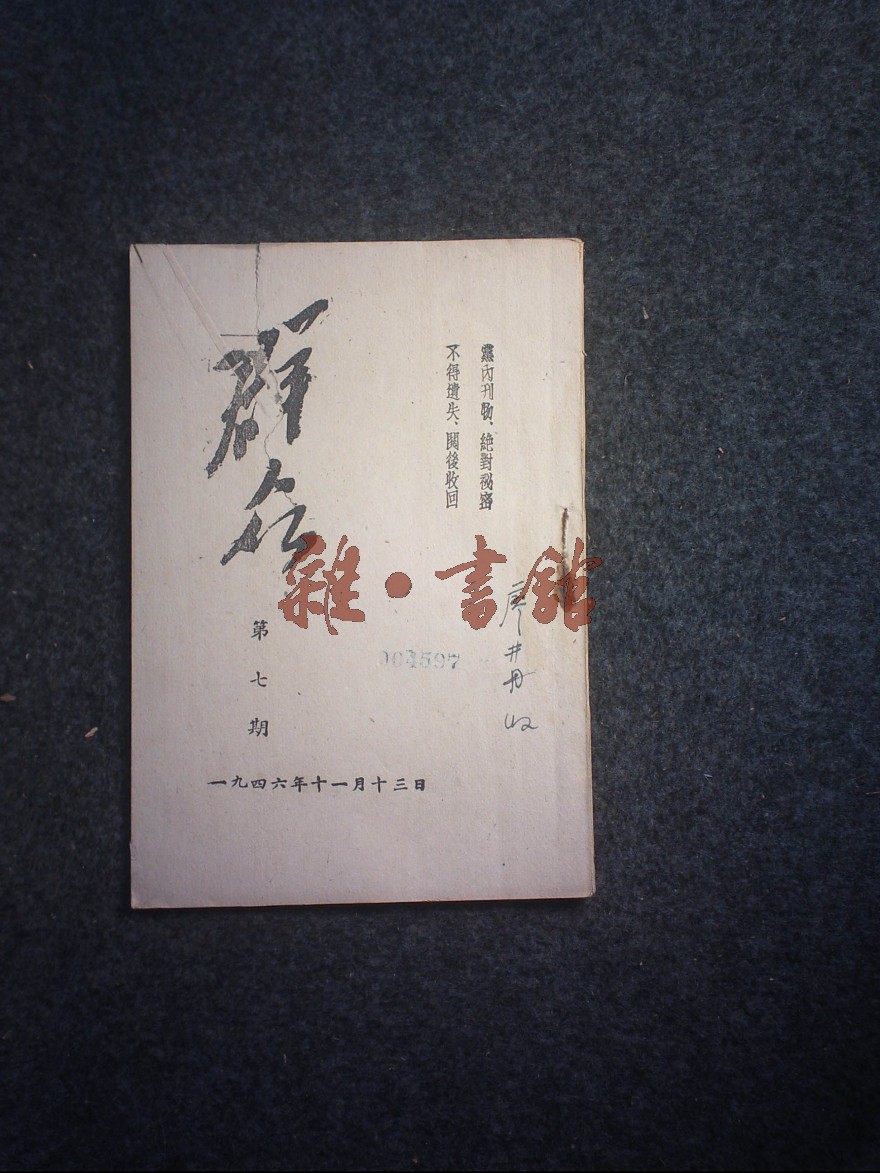 黨內刊物、絕對祕密
不得遺失、閱後收回
群众
第七期
一九四六年十一月十三日
004597
廖井丹收
雜·書館